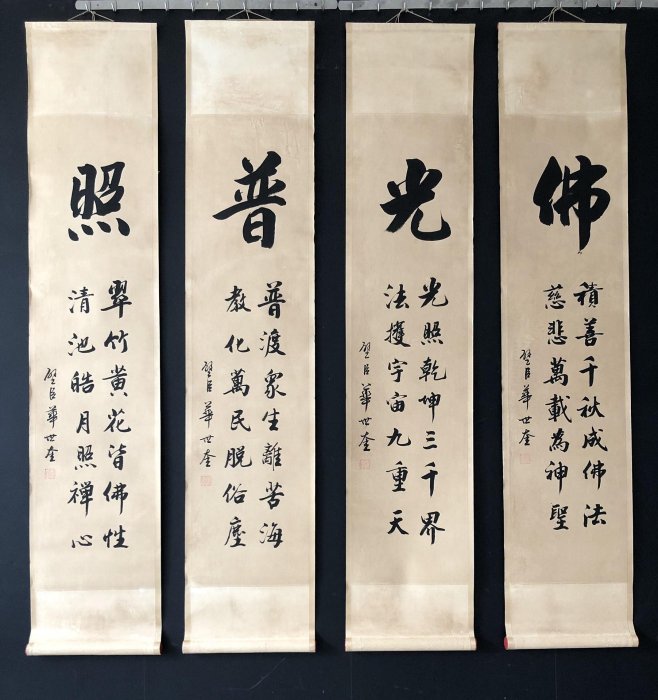 佛
積善千秋成佛法
慈悲萬載為神聖
璧臣華世奎
光
光照乾坤三千界
法護宇宙九重天
璧臣華世奎
普
普渡眾生離苦海
教化萬民脫俗塵
璧臣華世奎
照
翠竹黃花皆佛性
清池皓月照禪心
璧臣華世奎